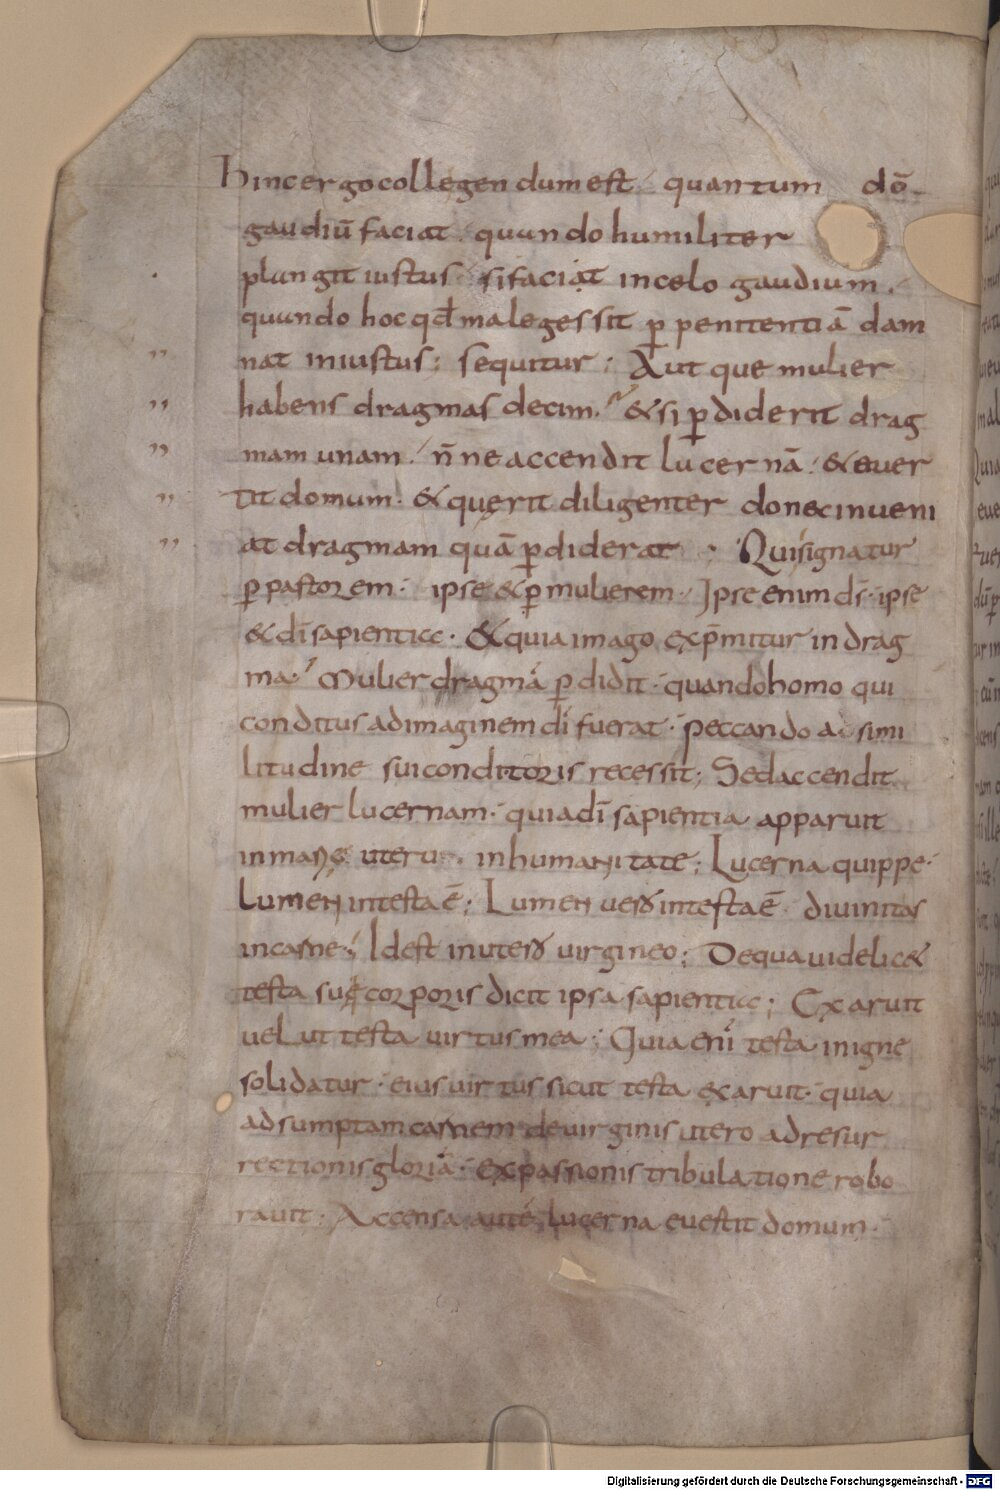 Hinc ergo collegendum est quantum dō
gaudiū faciat. quando humiliter
plangit iustus. si faciat in celo gaudium.
quando hoc qđ male gessit ꝑ penitentiā dam
nat iniustus; sequitur; Aut que mulier
habens dragmas decim. & si ꝑdiderit drag
mam unam. n̄ne accendit lucernā. & euer
tit domum. & querit diligenter donec inueni
at dragmam quā ꝑdiderat; Qui signatur
ꝑ pastorem. ipse & ꝑ mulierem. Ipse enim d̄s. ipse
& dī sapientia. & quia imago exp̄mitur in drag
ma. Mulier dragmā ꝑdidit. quando homo qui
conditus ad imaginem dī fuerat. peccando a simi
litudine sui conditoris recessit; Sed accendit
mulier lucernam. quia dī sapientia apparuit
in marię utero. in humanitate; Lucerna quippe.
Lumen in testa ē; Lumen uero in testa ē. diuinitas
in carne; Id est in utero uirgineo; De qua uidelic&
testa suę corporis dicit ipsa sapientia; Exaruit
uelut testa uirtus mea; Quia eni testa in igne
solidatur. eius uirtus sicut testa exaruit. quia
adsumptam carnem de uirginis utero ad resur
rectionis gloriā. ex passionis tribulatione robo
rauit. Accensa autē lucerna euestit domum.
Digitalisierung gefördert durch die Deutsche Forschungsgemeinschaft - DFG